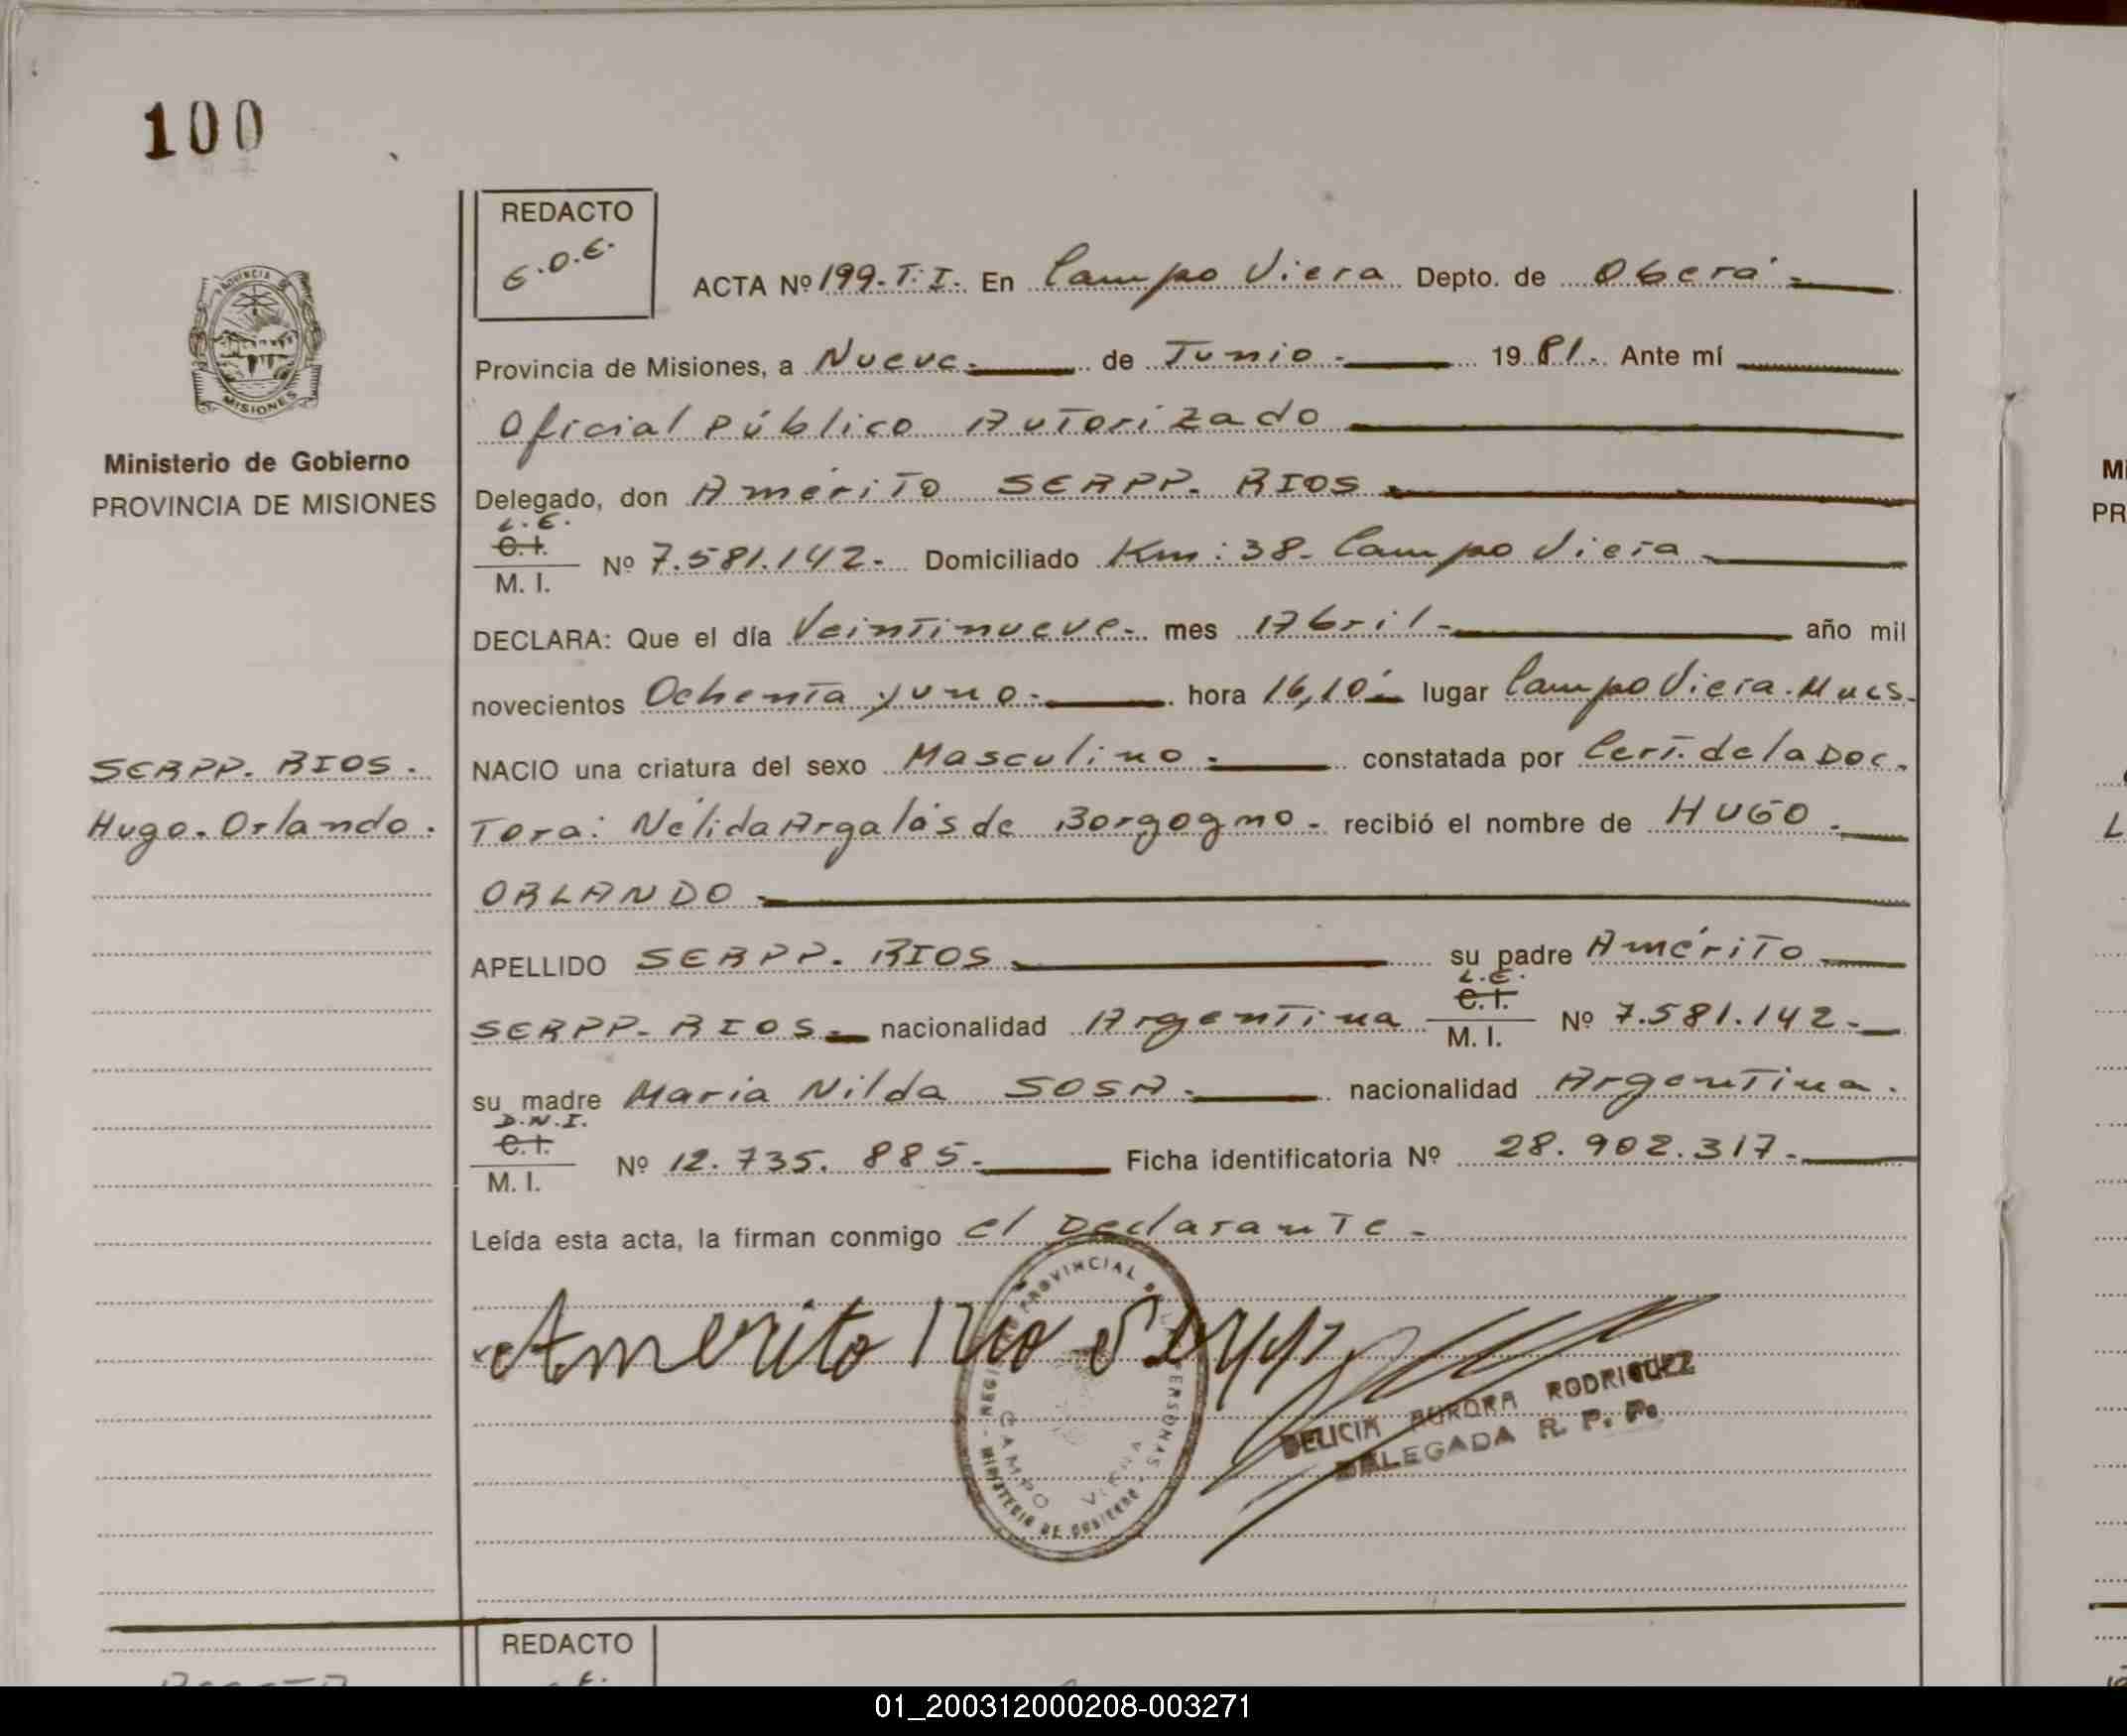 100
REDACTO
E.O.E.
ACTA Nº 199.T.I. En Campo Viera Depto. de Oberá.
Provincia de Misiones, a Nueve. de Junio. 1981. Ante mí
Oficial Público Autorizado
Ministerio de Gobierno
PROVINCIA DE MISIONES
Delegado, don Amérito SERPP. RIOS
L.E.
C.I.
M. I. Nº 7.581.142. Domiciliado Km: 38. Campo Viera
DECLARA: Que el día Veintinueve. mes Abril. año mil
novecientos Ochenta y uno. hora 16,10 lugar Campo Viera. Mnes.
SERPP. RIOS.
Hugo. Orlando.
NACIO una criatura del sexo Masculino. constatada por Cert. de la Doc.
Tora: Nélida Argalás de Borgogno. recibió el nombre de HUGO.
ORLANDO
APELLIDO SERPP. RIOS su padre Amérito
SERPP. RIOS. nacionalidad Argentina L.E.
C.I.
M. I. Nº 7.581.142.
su madre Maria Nilda SOSA. nacionalidad Argentina.
D.N.I.
C.I.
M. I. Nº 12.735.885. Ficha identificatoria Nº 28.902.317.
Leída esta acta, la firman conmigo el Declarante.
Amerito Rio Serpp
REGISTRO PROVINCIAL DE LAS PERSONAS
MINISTERIO DE GOBIERNO
CAMPO VIERA
DELICIA AURORA RODRIGUEZ
DELEGADA R. P. P.
REDACTO
01_200312000208-003271